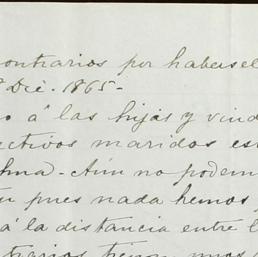 contrarios por haberse
Dic. 1865-
á las hijas y viud
ectivos maridos es
lma - Aún no podem
pues nada hemos
á la distancia entre l